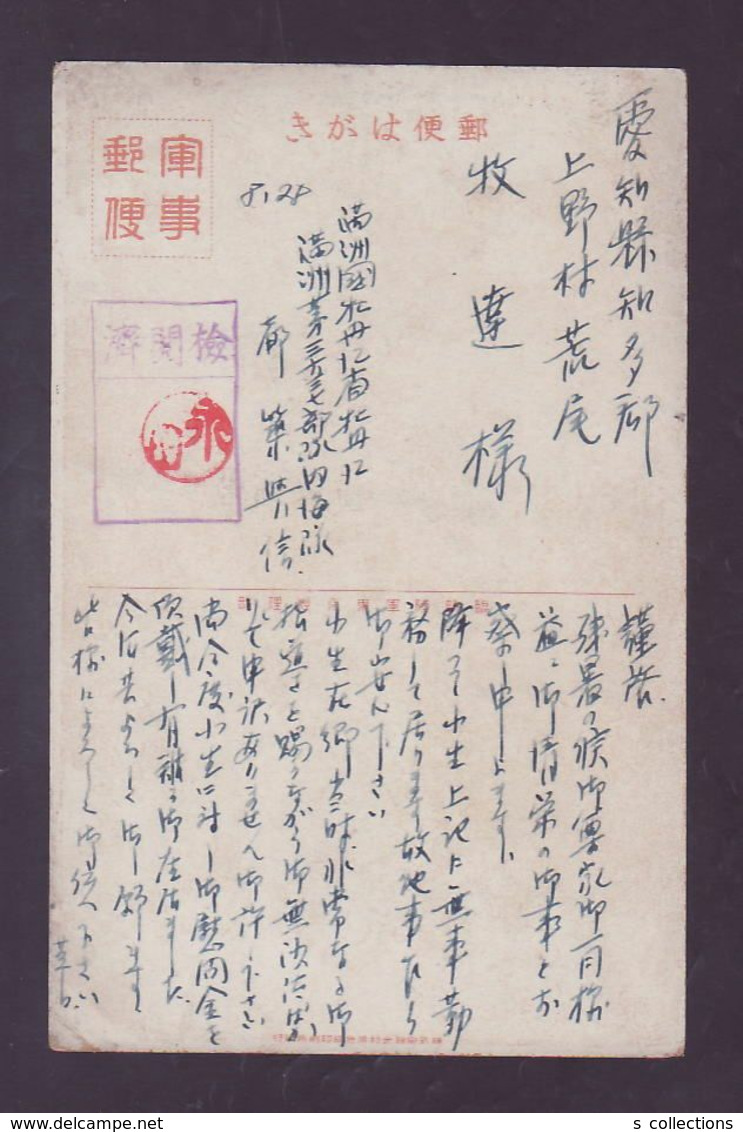 郵便はがき
軍事郵便
檢閲濟
永
愛知縣知多郡
上野村荒尾
牧 達 様
8.28
満洲國牡丹江省牡丹江
満洲第三六三七部隊内海隊
都築
謹啓
残暑の候御尊家御一同様
益々御清栄の御事とお
察し申上ます
降つて小生上記に無事勤
務して居ります故他事乍ら
御安心下さい
小生在郷当時非常なる御
指導を賜りながら御無沙汰ばか
りで申訳ありません御許し下さい
尚今度小生に対し御慰問金を
頂戴し有難う御座居ました
今后共よろしく御願ひします
皆様によろしく御伝へ下さい
草々
s collections